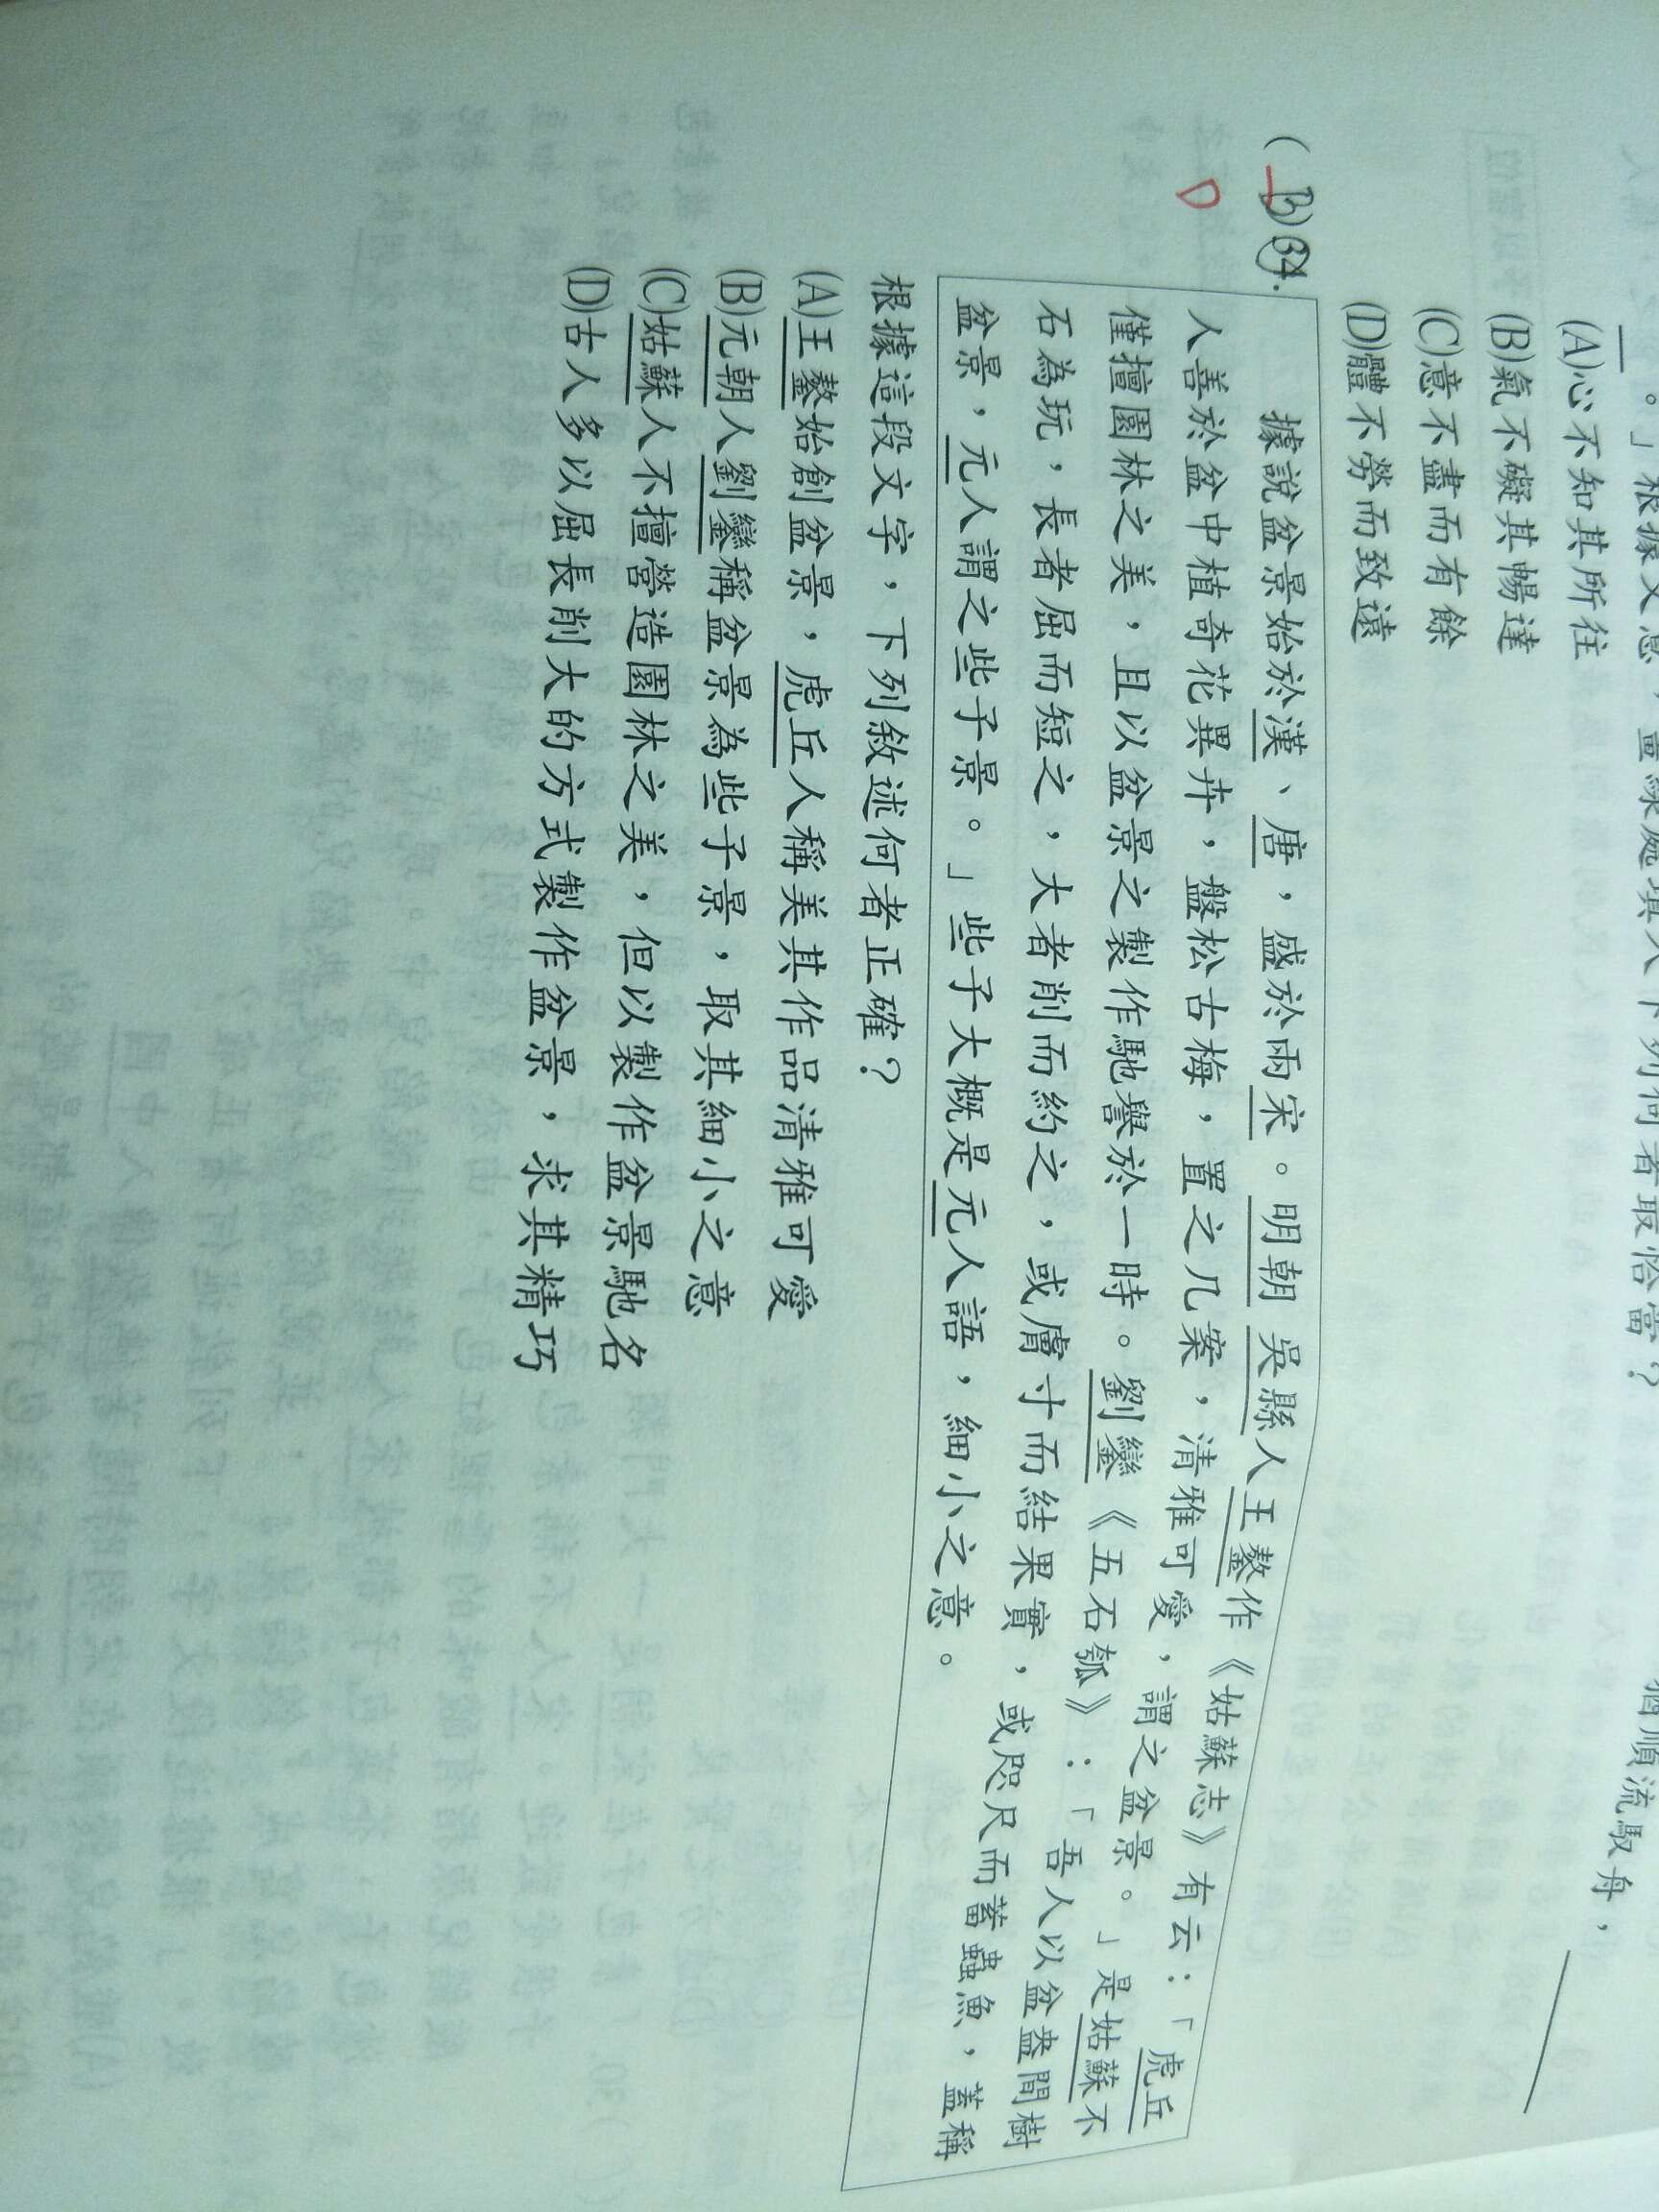 。」根據文意，畫線處填入下列何者最恰當？
猶順流馭舟，
(A)心不知其所往
(B)氣不礙其暢達
(C)意不盡而有餘
(D)體不勞而致遠
(B)34.
D
據說盆景始於漢、唐，盛於兩宋。明朝 吳縣人王鏊作《姑蘇志》有云：「虎丘
人善於盆中植奇花異卉，盤松古梅，置之几案，清雅可愛，謂之盆景。」是姑蘇不
僅擅園林之美，且以盆景之製作馳譽於一時。劉鑾《五石瓠》：「吾人以盆盎間樹
石為玩，長者屈而短之，大者削而約之，或膚寸而結果實，或咫尺而蓄蟲魚，蓋稱
盆景，元人謂之些子景。」些子大概是元人語，細小之意。
根據這段文字，下列敘述何者正確？
(A)王鏊始創盆景，虎丘人稱美其作品清雅可愛
(B)元朝人劉鑾稱盆景為些子景，取其細小之意
(C)姑蘇人不擅營造園林之美，但以製作盆景馳名
(D)古人多以屈長削大的方式製作盆景，求其精巧